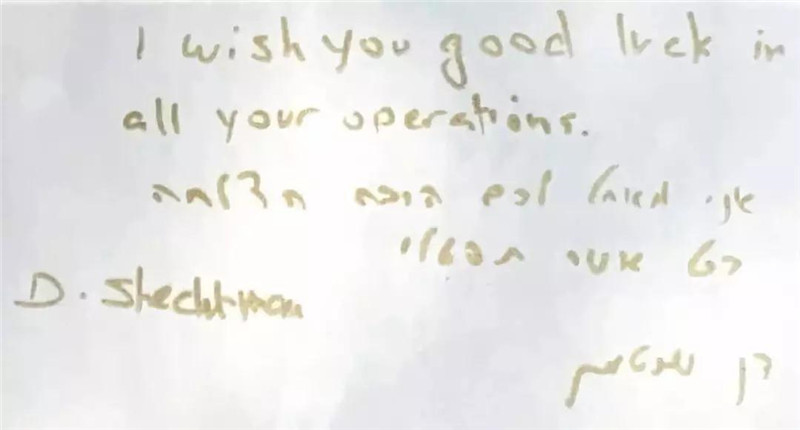 I wish you good luck in
all your operations.
אני מאחל לכם הרבה הצלחה
כל אשר תפעלו
D. Shechtman
דן שכטמן